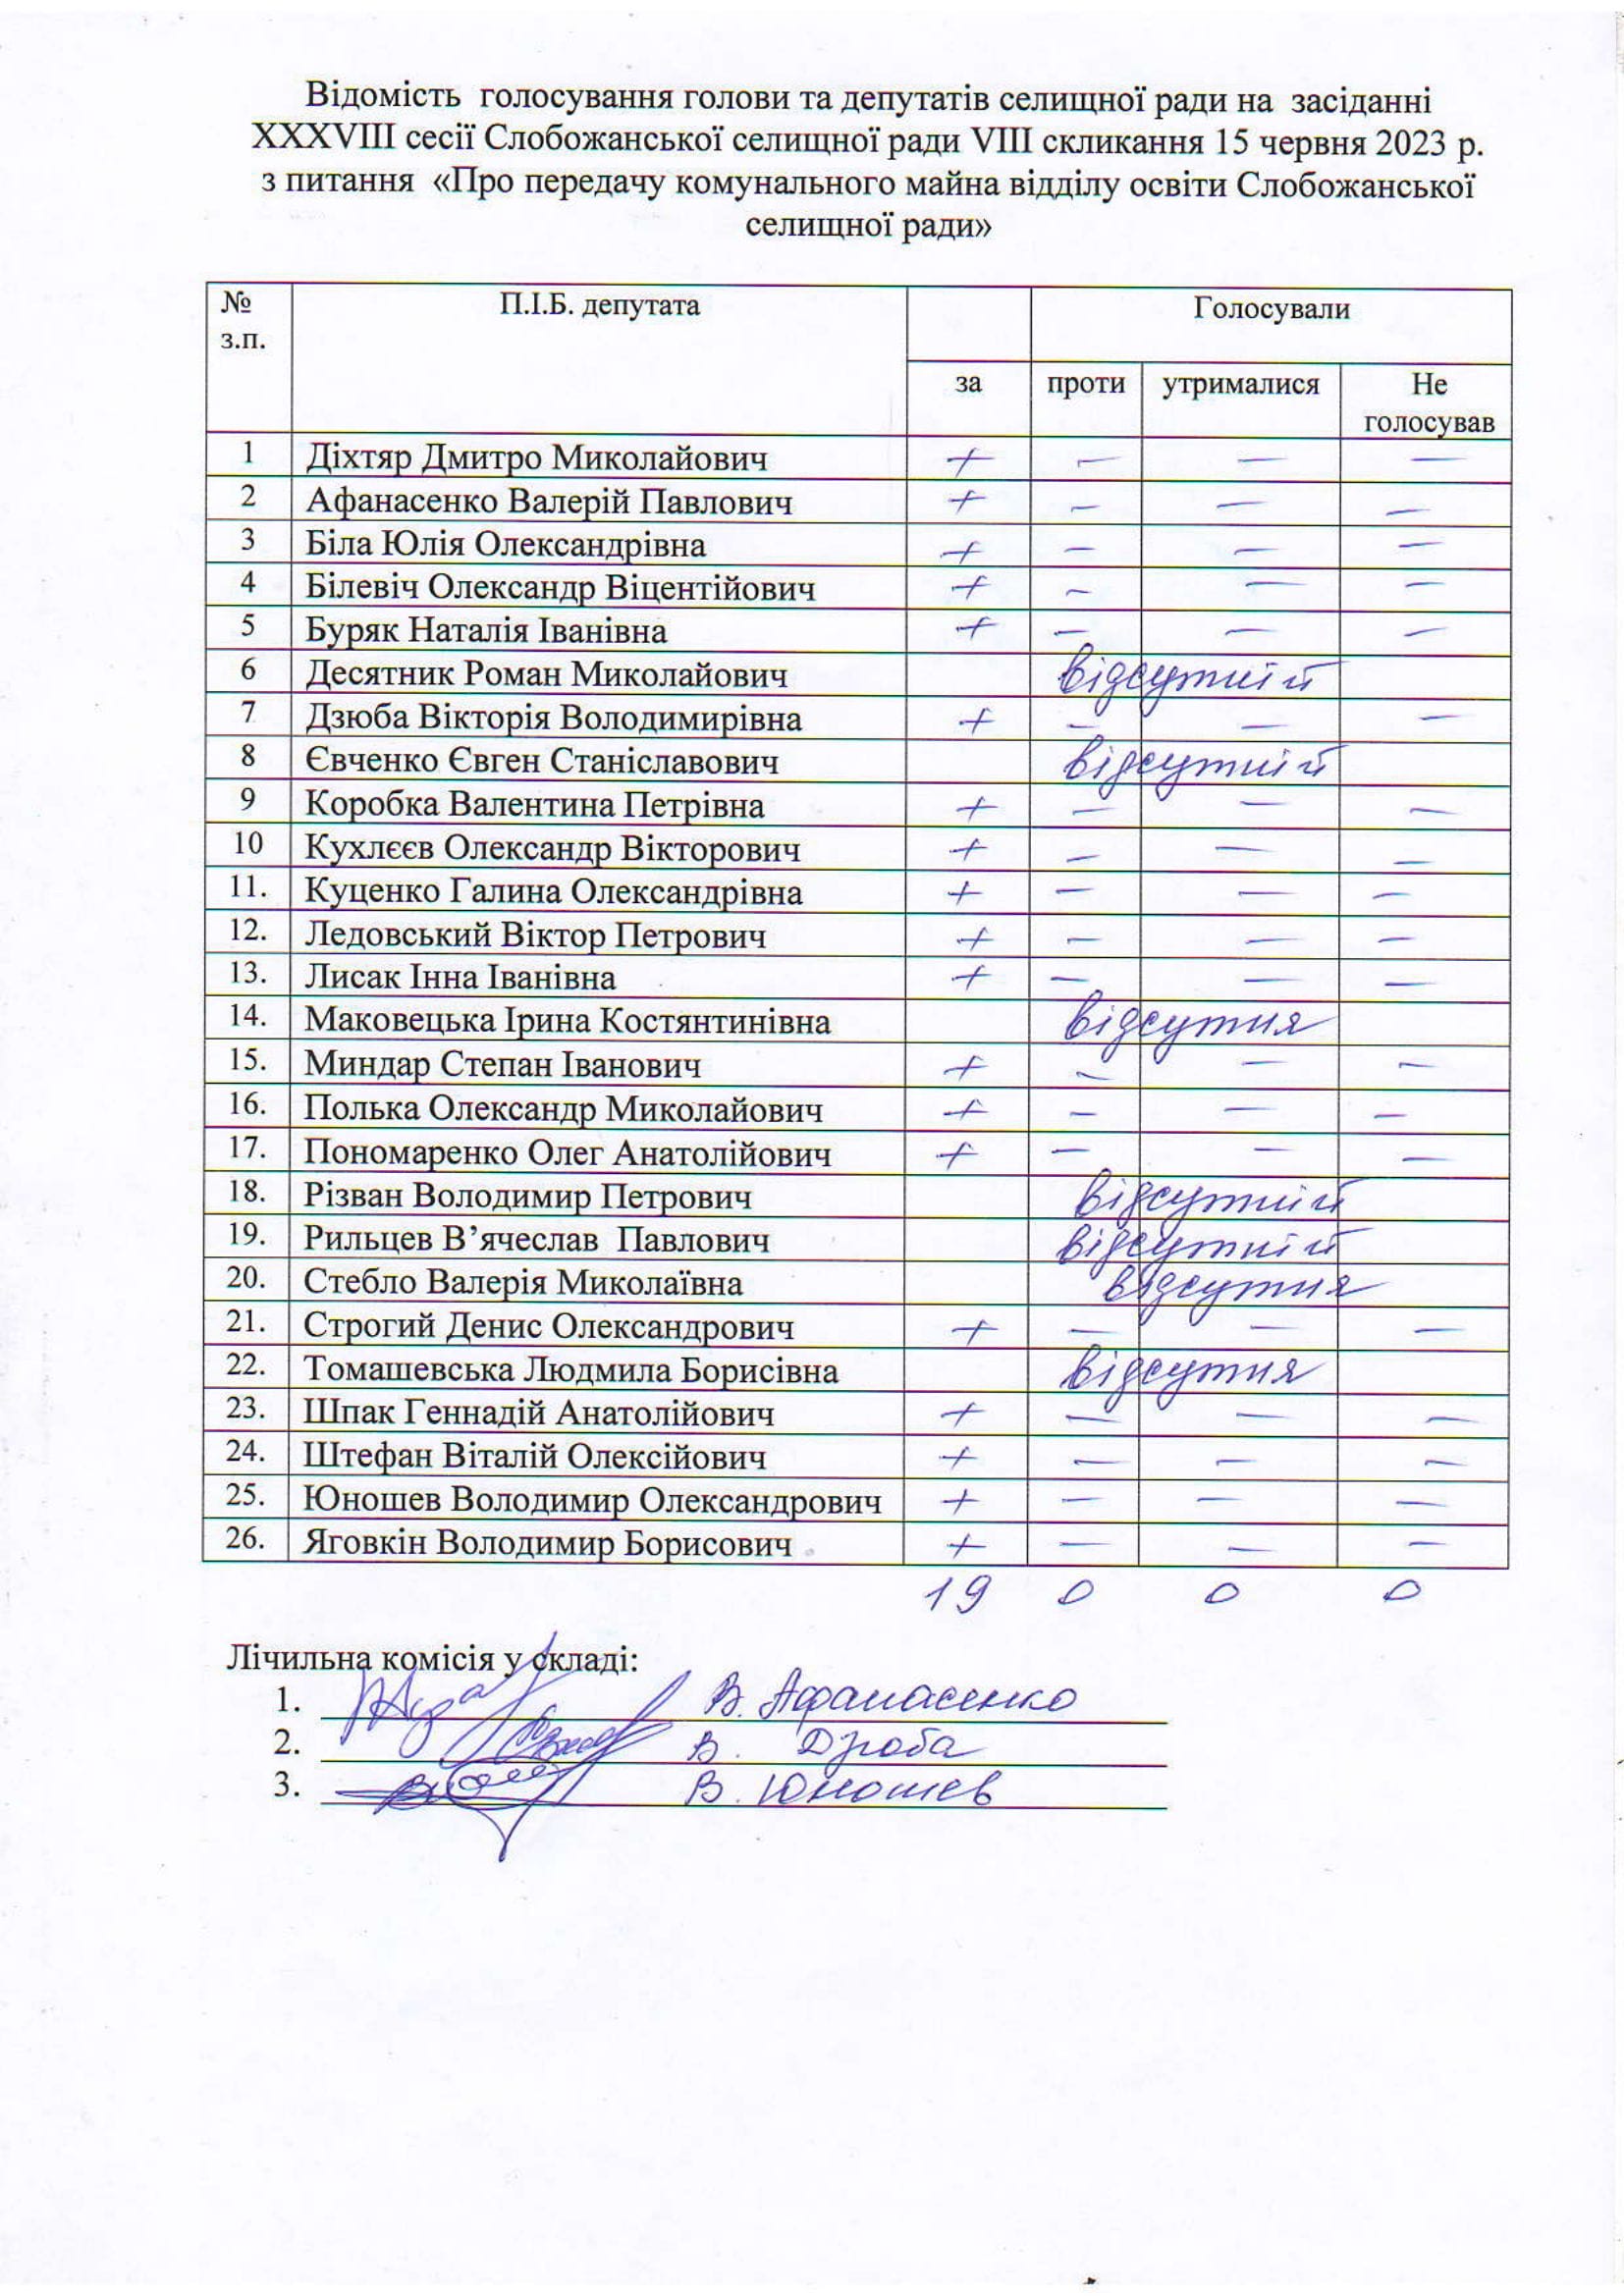 Відомість голосування голови та депутатів селищної ради на засіданні
XXXVIII сесії Слобожанської селищної ради VIII скликання 15 червня 2023 р.
з питання «Про передачу комунального майна відділу освіти Слобожанської
селищної ради»
№ з.п. П.І.Б. депутата Голосували
за проти утрималися Не голосував
1 Діхтяр Дмитро Миколайович + — — —
2 Афанасенко Валерій Павлович + — — —
3 Біла Юлія Олександрівна + — — —
4 Білевіч Олександр Віцентійович + — — —
5 Буряк Наталія Іванівна + — — —
6 Десятник Роман Миколайович відсутній
7 Дзюба Вікторія Володимирівна + — — —
8 Євченко Євген Станіславович відсутній
9 Коробка Валентина Петрівна + — — —
10 Кухлєєв Олександр Вікторович + — — —
11. Куценко Галина Олександрівна + — — —
12. Ледовський Віктор Петрович + — — —
13. Лисак Інна Іванівна + — — —
14. Маковецька Ірина Костянтинівна відсутня
15. Миндар Степан Іванович + — — —
16. Полька Олександр Миколайович + — — —
17. Пономаренко Олег Анатолійович + — — —
18. Різван Володимир Петрович відсутній
19. Рильцев В’ячеслав Павлович відсутній
20. Стебло Валерія Миколаївна відсутня
21. Строгий Денис Олександрович + — — —
22. Томашевська Людмила Борисівна відсутня
23. Шпак Геннадій Анатолійович + — — —
24. Штефан Віталій Олексійович + — — —
25. Юношев Володимир Олександрович + — — —
26. Яговкін Володимир Борисович + — — —
19 0 0 0
Лічильна комісія у складі:
1. В. Афанасенко
2. В. Дзюба
3. В. Юношев